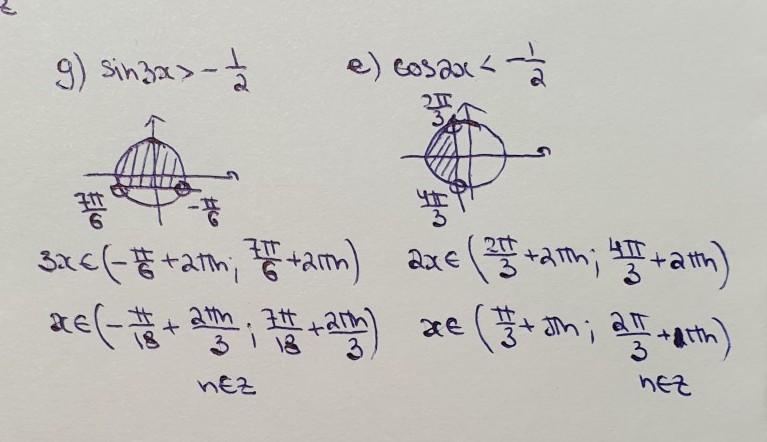 g) sin3x > -1/2
7π/6
-π/6
3x ∈ (-π/6 + 2πn; 7π/6 + 2πn)
x ∈ (-π/18 + 2πn/3; 7π/18 + 2πn/3)
n ∈ Z
e) cos2x < -1/2
2π/3
4π/3
2x ∈ (2π/3 + 2πn; 4π/3 + 2πn)
x ∈ (π/3 + πn; 2π/3 + πn)
n ∈ Z